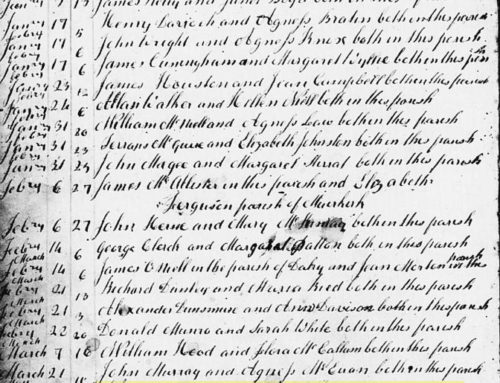 Jany 17 Henry Darjech and Agness Brahn both in this parish
Jany 17 5 John Wright and Agness Knox both in this parish
James Cuningham and Margaret Wyllie both in this
Jany 23 James Houston and Jean Campbell both in this parish
Jany 24 6 Allan Cather and Hellen Neill both in this parish
Jany 31 20 William McMell and Agness Law both in this parish
Jany 31 Serrans McGuire and Elizabeth Johnston both in this parish
Jany 31 24 John McGee and Margaret Herral both in this parish
Febry 6 27 James McAllester in this parish and Elizabeth
Ferguson parish of Muirkirk
Febry 6 27 John Herse and Mary both in this parish
Febry 14 6 George Clerch and Margaret Patton both in this parish
March
Febry 14 6 James O Neill in the parish of Dalry and Jean Merton in this parish
March
Febry 21 13 Richard Dunley and Maria Reed both in this parish
March
Febry 21 Alexander Dunsmure and Ann Davison both in this parish
March
Febry 22 20 Donald Munro and Sarah White both in this parish
March
March 7 18 William Hood and Flora McCallum both in this parish
March 21 John Murray and Agness McEwan both in this parish